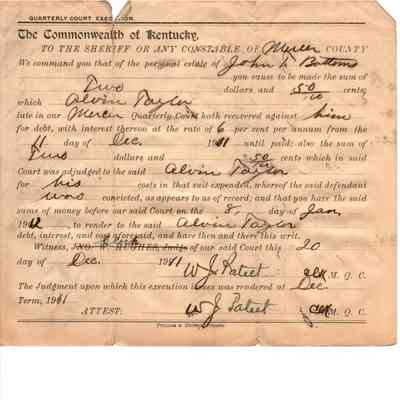 QUARTERLY COURT EXECUTION.
The Commonwealth of Kentucky,
TO THE SHERIFF OR ANY CONSTABLE, OF Mercer COUNTY
We command you that of the personal estate of John Bottoms
you cause to be made the sum of
Two dollars and 50/10 cents;
which Alvin Taylor
late in our Mercer Quarterly Court hath recovered against him
for debt, with interest thereon at the rate of 6 per cent per annum from the
11 day of Dec. 1911 until paid; also the sum of
Two dollars and 50 cents which in said
Court was adjudged to the said Alvin Taylor
for his costs in that suit expended, whereof the said defendant
was convicted, as appears to us of record; and that you have the said
sums of money before our said Court on the 5 day of Jan
1912, to render to the said Alvin Taylor
debt, interest, and cost aforesaid, and have then and there this writ.
Witness, JNO. HUGHES, Judge of our said Court this 20
day of Dec. 1911
W J Pateet clk M. Q. C.
The Judgment upon which this execution issues was rendered at Dec.
Term, 1911
ATTEST: W J Pateet clk M. Q. C.